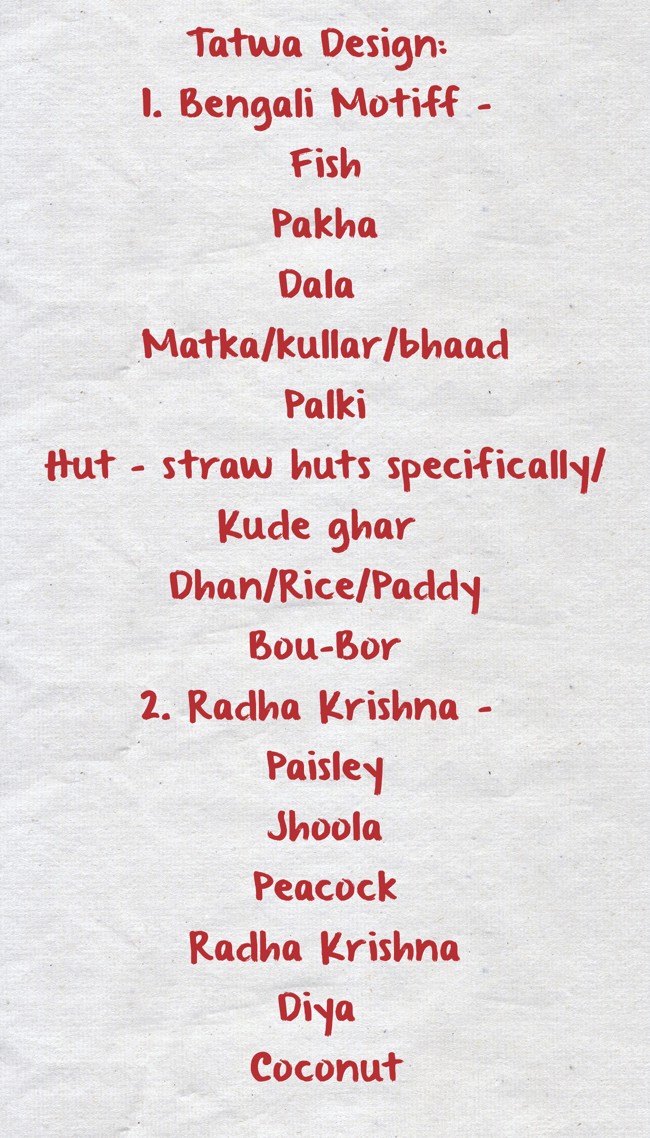 Tatwa Design:
1. Bengali Motiff -
Fish
Pakha
Dala
Matka/kullar/bhaad
Palki
Hut - straw huts specifically/
Kude ghar
Dhan/Rice/Paddy
Bou-Bor
2. Radha Krishna -
Paisley
Jhoola
Peacock
Radha Krishna
Diya
Coconut